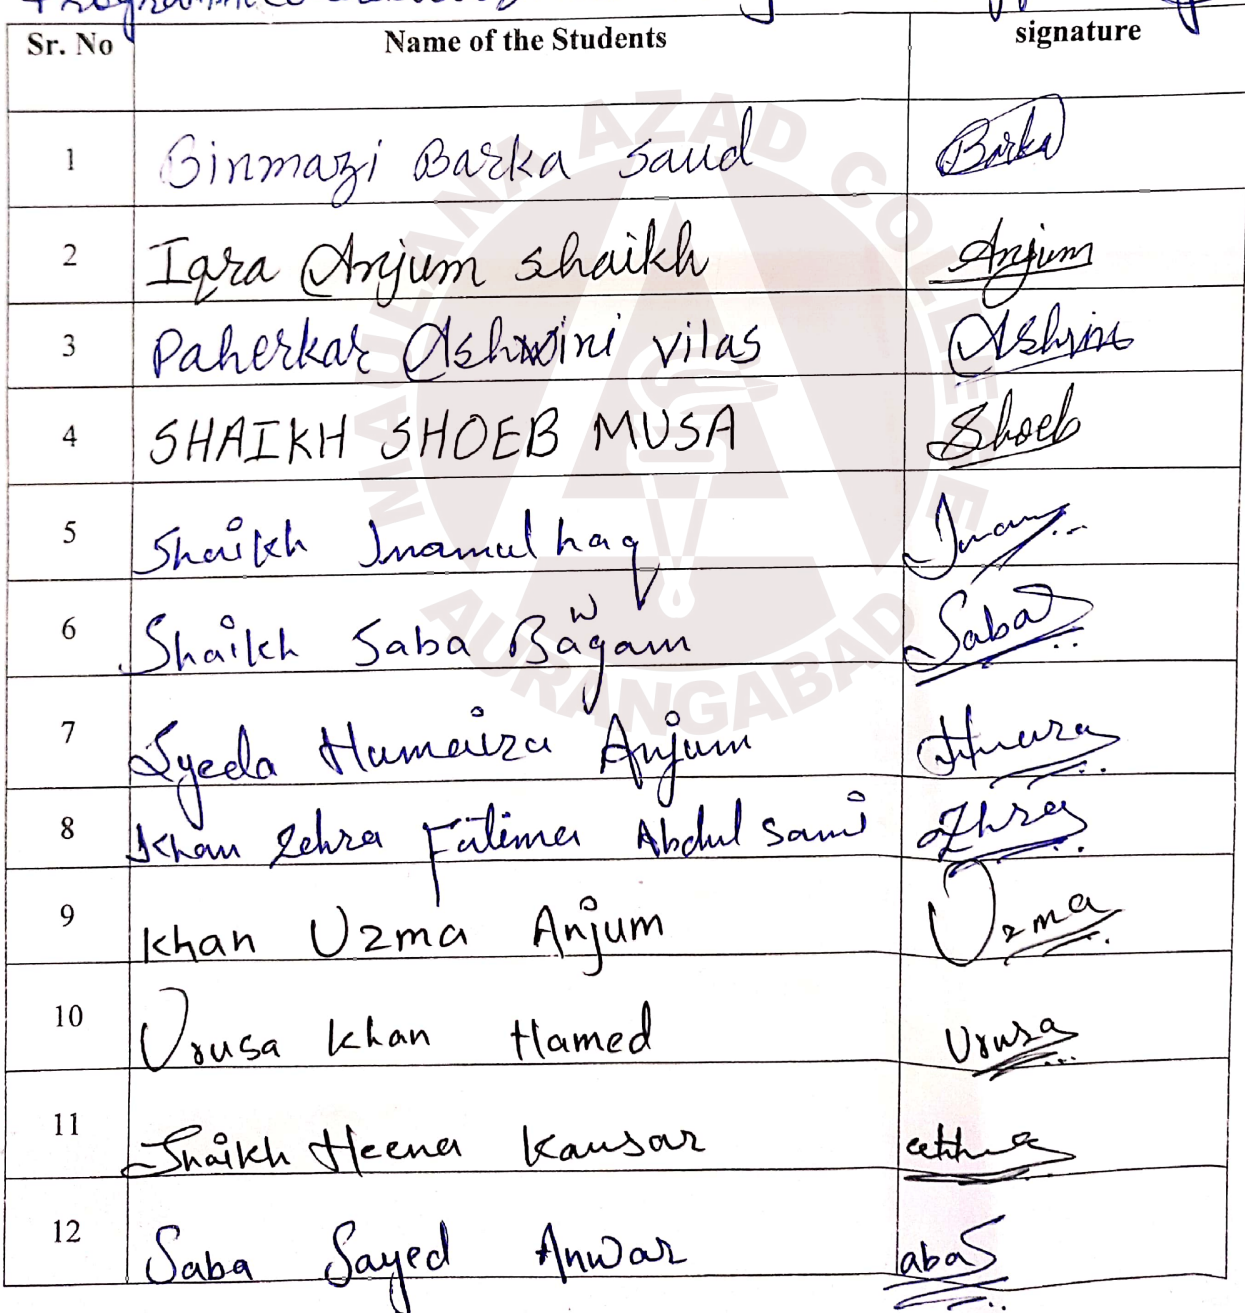 Sr. No Name of the Students signature
1 Binmazi Barka Saud Barka
2 Iqra Anjum Shaikh Anjum
3 Paherkar Ashwini Vilas Ashvini
4 SHAIKH SHOEB MUSA Shoeb
5 Shaikh Inamul haq Inam
6 Shaikh Saba Bagam Saba
7 Syeda Humaira Anjum
8 Khan Zehra Fatima Abdul Sami Zhra
9 Khan Uzma Anjum Uzma
10 Urusa Khan Hamed Urusa
11 Shaikh Heena Kausar
12 Saba Sayed Anwar abaS
MAULANA AZAD COLLEGE
AURANGABAD